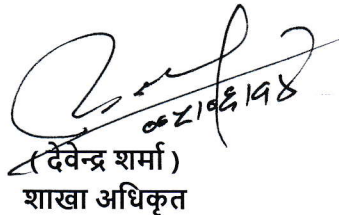 ०८।०६।१४
( देवेन्द्र शर्मा )
शाखा अधिकृत